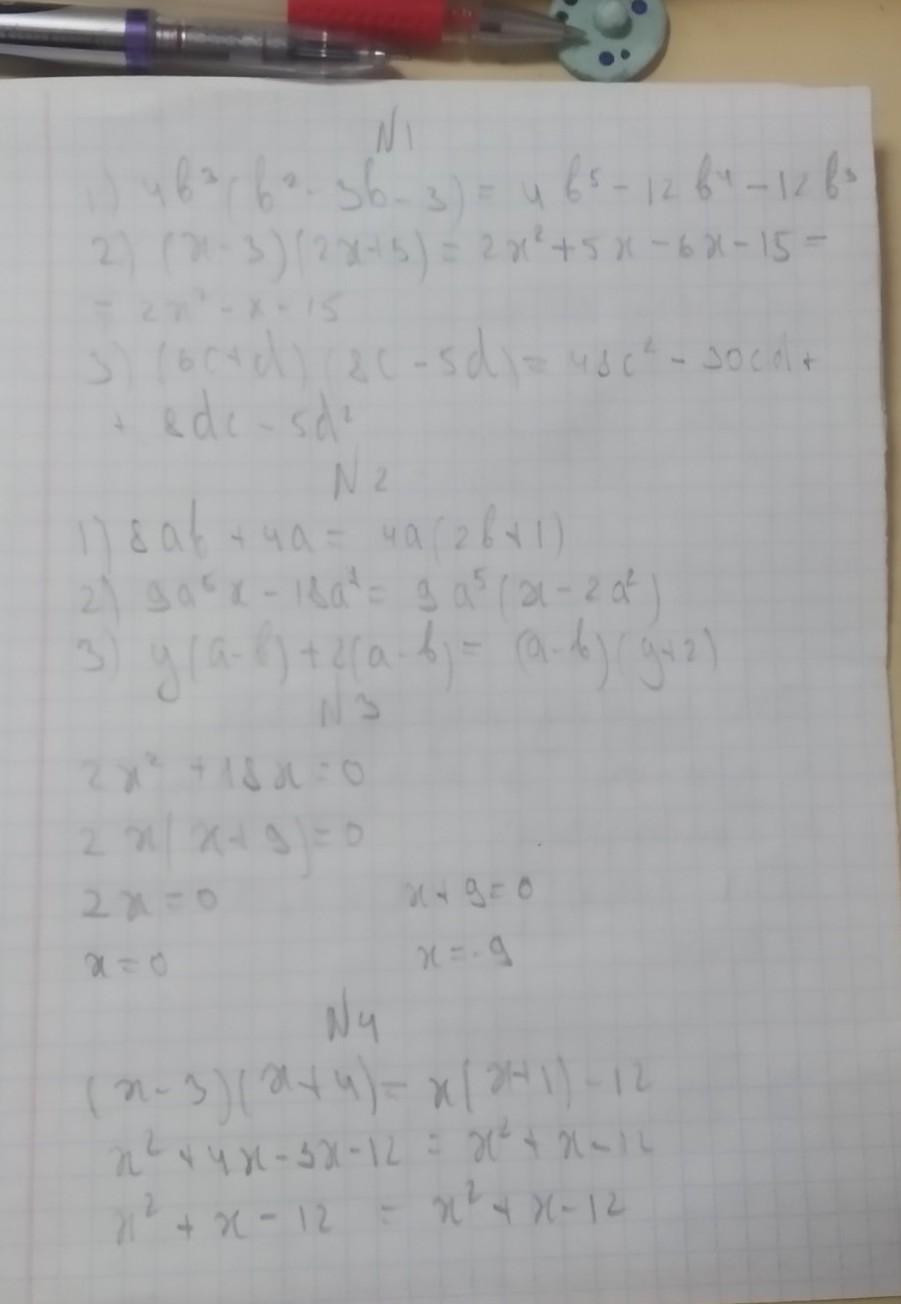 N1
1) 4b³(b²-3b-3)= 4b⁵-12b⁴-12b³
2) (x-3)(2x+5)=2x²+5x-6x-15=
=2x²-x-15
3) (6c+d)(8c-5d)=48c²-30cd+
+ 8dc-5d²
N2
1) 8ab+4a= 4a(2b+1)
2) 9a⁵x-18a⁷= 9a⁵(x-2a²)
3) y(a-b)+2(a-b)= (a-b)(y+2)
N3
2x²+18x=0
2x(x+9)=0
2x=0 x+9=0
x=0 x=-9
N4
(x-3)(x+4)=x(x+1)-12
x²+4x-3x-12 = x²+x-12
x²+x-12 = x²+x-12